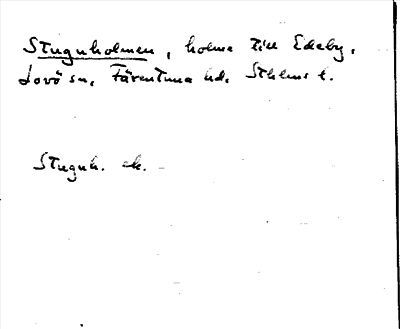 Stugnholmen, holme till Edeby,
Lovö sn, Färentuna hd, Sthlms l.
Stugnh. ek.